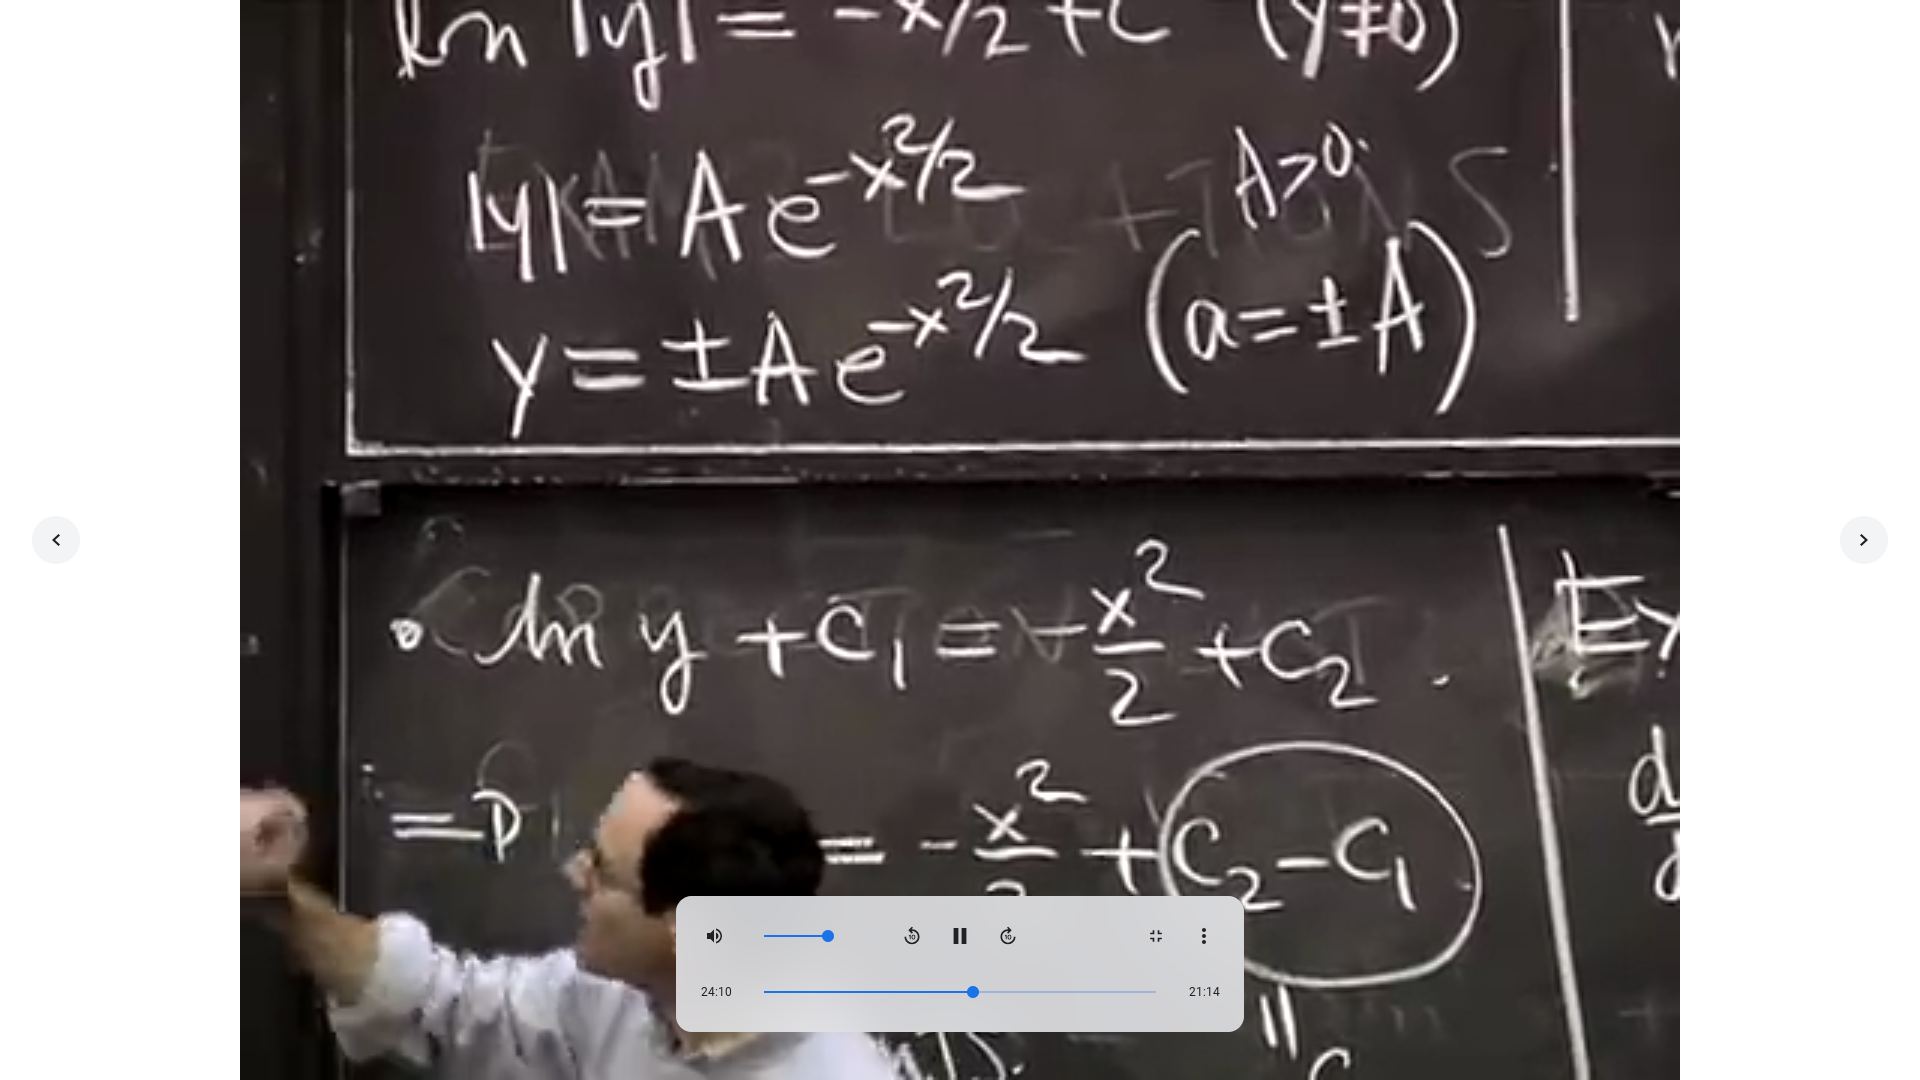 ln |y| = -x/2 + C (y≠0)
|y| = A e^{-x²/2} A>0
y = ±A e^{-x²/2} (a = ±A)
ln y + C₁ = -x²/2 + C₂
= - x²/2 + C₂ - C₁
||
C
Ex
d
24:10
21:14